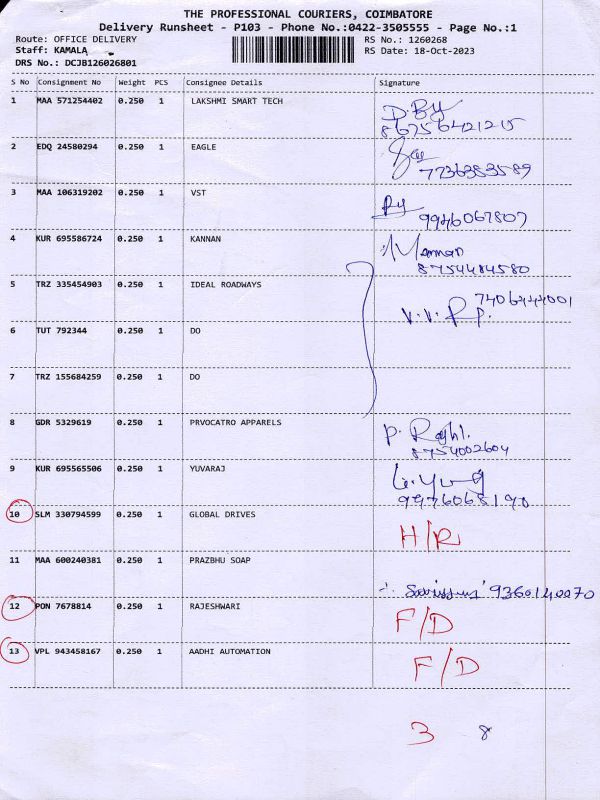 THE PROFESSIONAL COURIERS, COIMBATORE
Delivery Runsheet - P103 - Phone No.:0422-3505555 - Page No.:1
Route: OFFICE DELIVERY RS No.: 1260268
Staff: KAMALA RS Date: 18-Oct-2023
DRS No.: DCJB126026801
S No Consignment No Weight PCS Consignee Details Signature
1 MAA 571254402 0.250 1 LAKSHMI SMART TECH
86756421215
2 EDQ 24580294 0.250 1 EAGLE
7736383589
3 MAA 106319202 0.250 1 VST
9946067807
4 KUR 695586724 0.250 1 KANNAN
8754484580
5 TRZ 335454903 0.250 1 IDEAL ROADWAYS
6 TUT 792344 0.250 1 DO
7 TRZ 155684259 0.250 1 DO
8 GDR 5329619 0.250 1 PRVOCATRO APPARELS
8754002604
9 KUR 695565506 0.250 1 YUVARAJ
10 SLM 330794599 0.250 1 GLOBAL DRIVES
H/R
11 MAA 600240381 0.250 1 PRAZBHU SOAP
9360140070
12 PON 7678814 0.250 1 RAJESHWARI
F/D
13 VPL 943458167 0.250 1 AADHI AUTOMATION
F/D
3 8